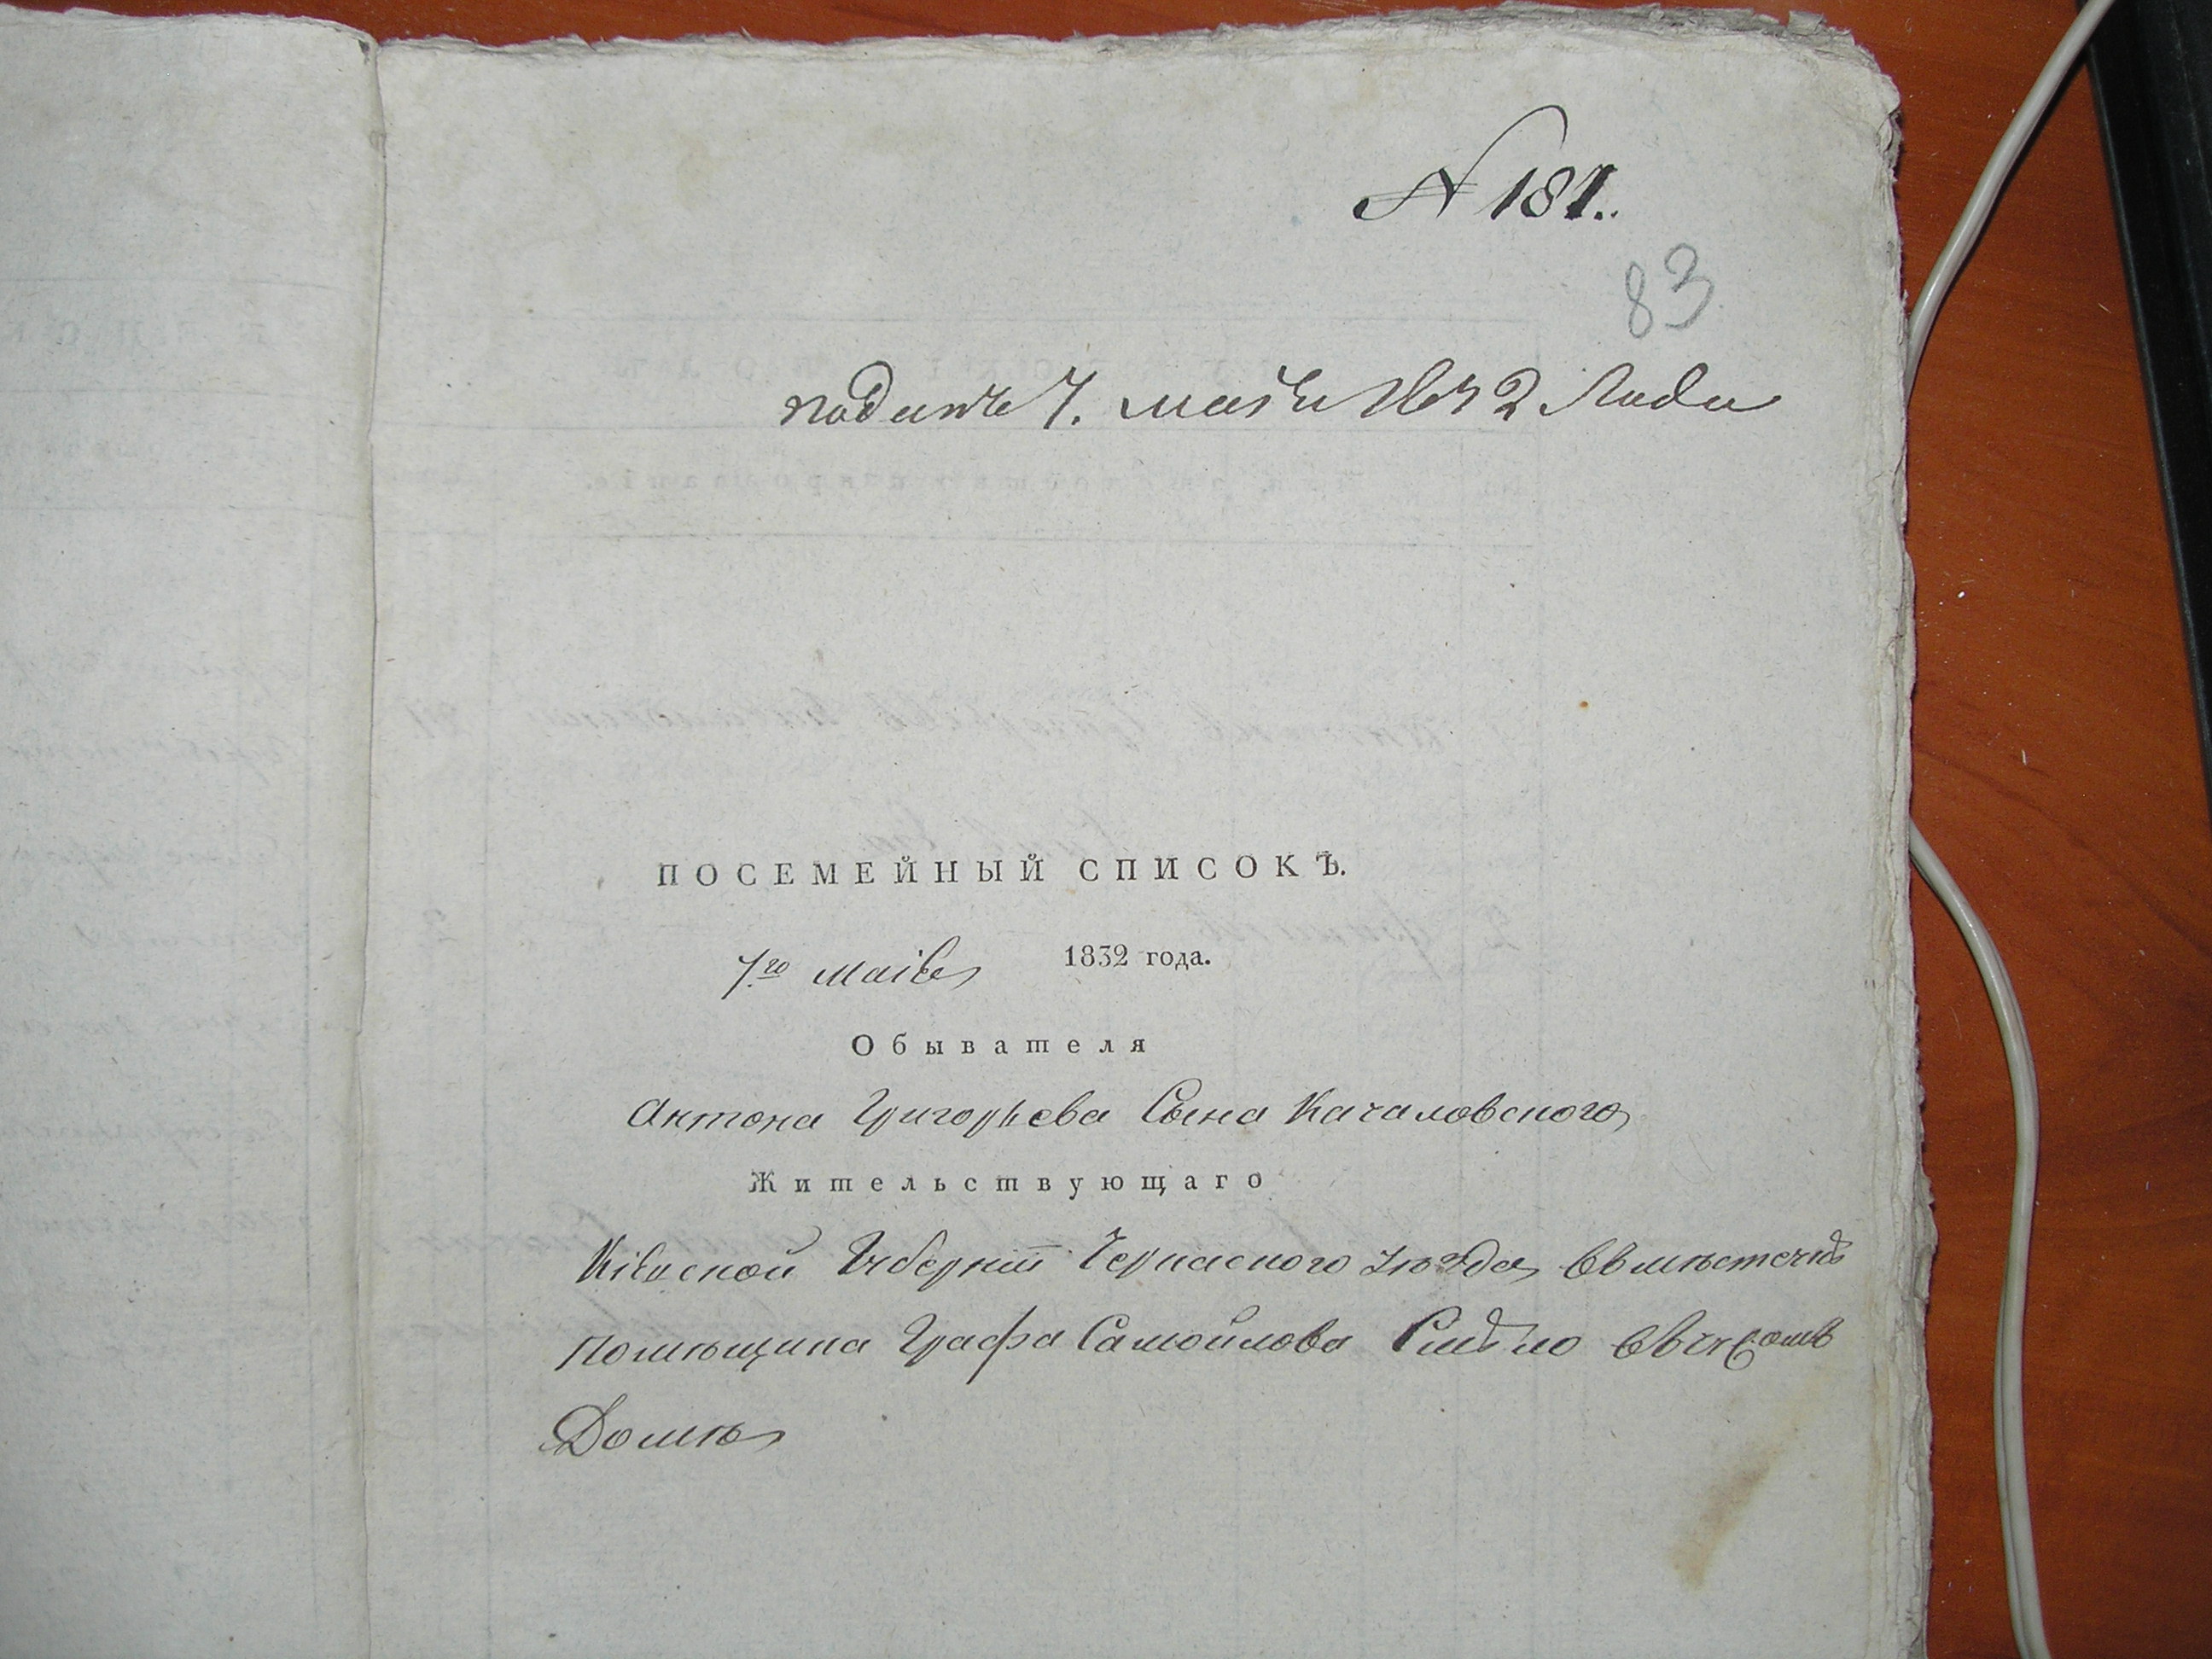 N 187.
83
поданъ 7. маія 1832 Года
ПОСЕМЕЙНЫЙ СПИСОКЪ.
7го маія 1832 года.
Обывателя
Антона Григорьева Сына Качаловского
Жительствующаго
Кіевской Губерніи Черкаского уѣзда въ мѣстечкѣ
помѣщика Графа Самойлова Смѣло въ чужомъ
Домѣ